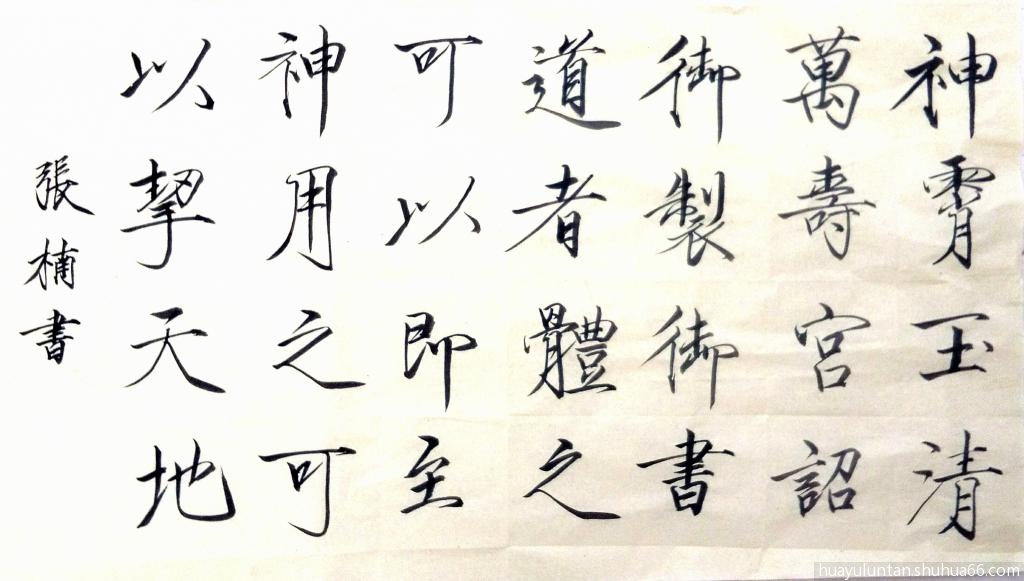 神霄玉清
萬壽宮詔
御製御書
道者體之
可以即至
神用之可
以挈天地
張楠書
huayuluntan.shuhua66.com